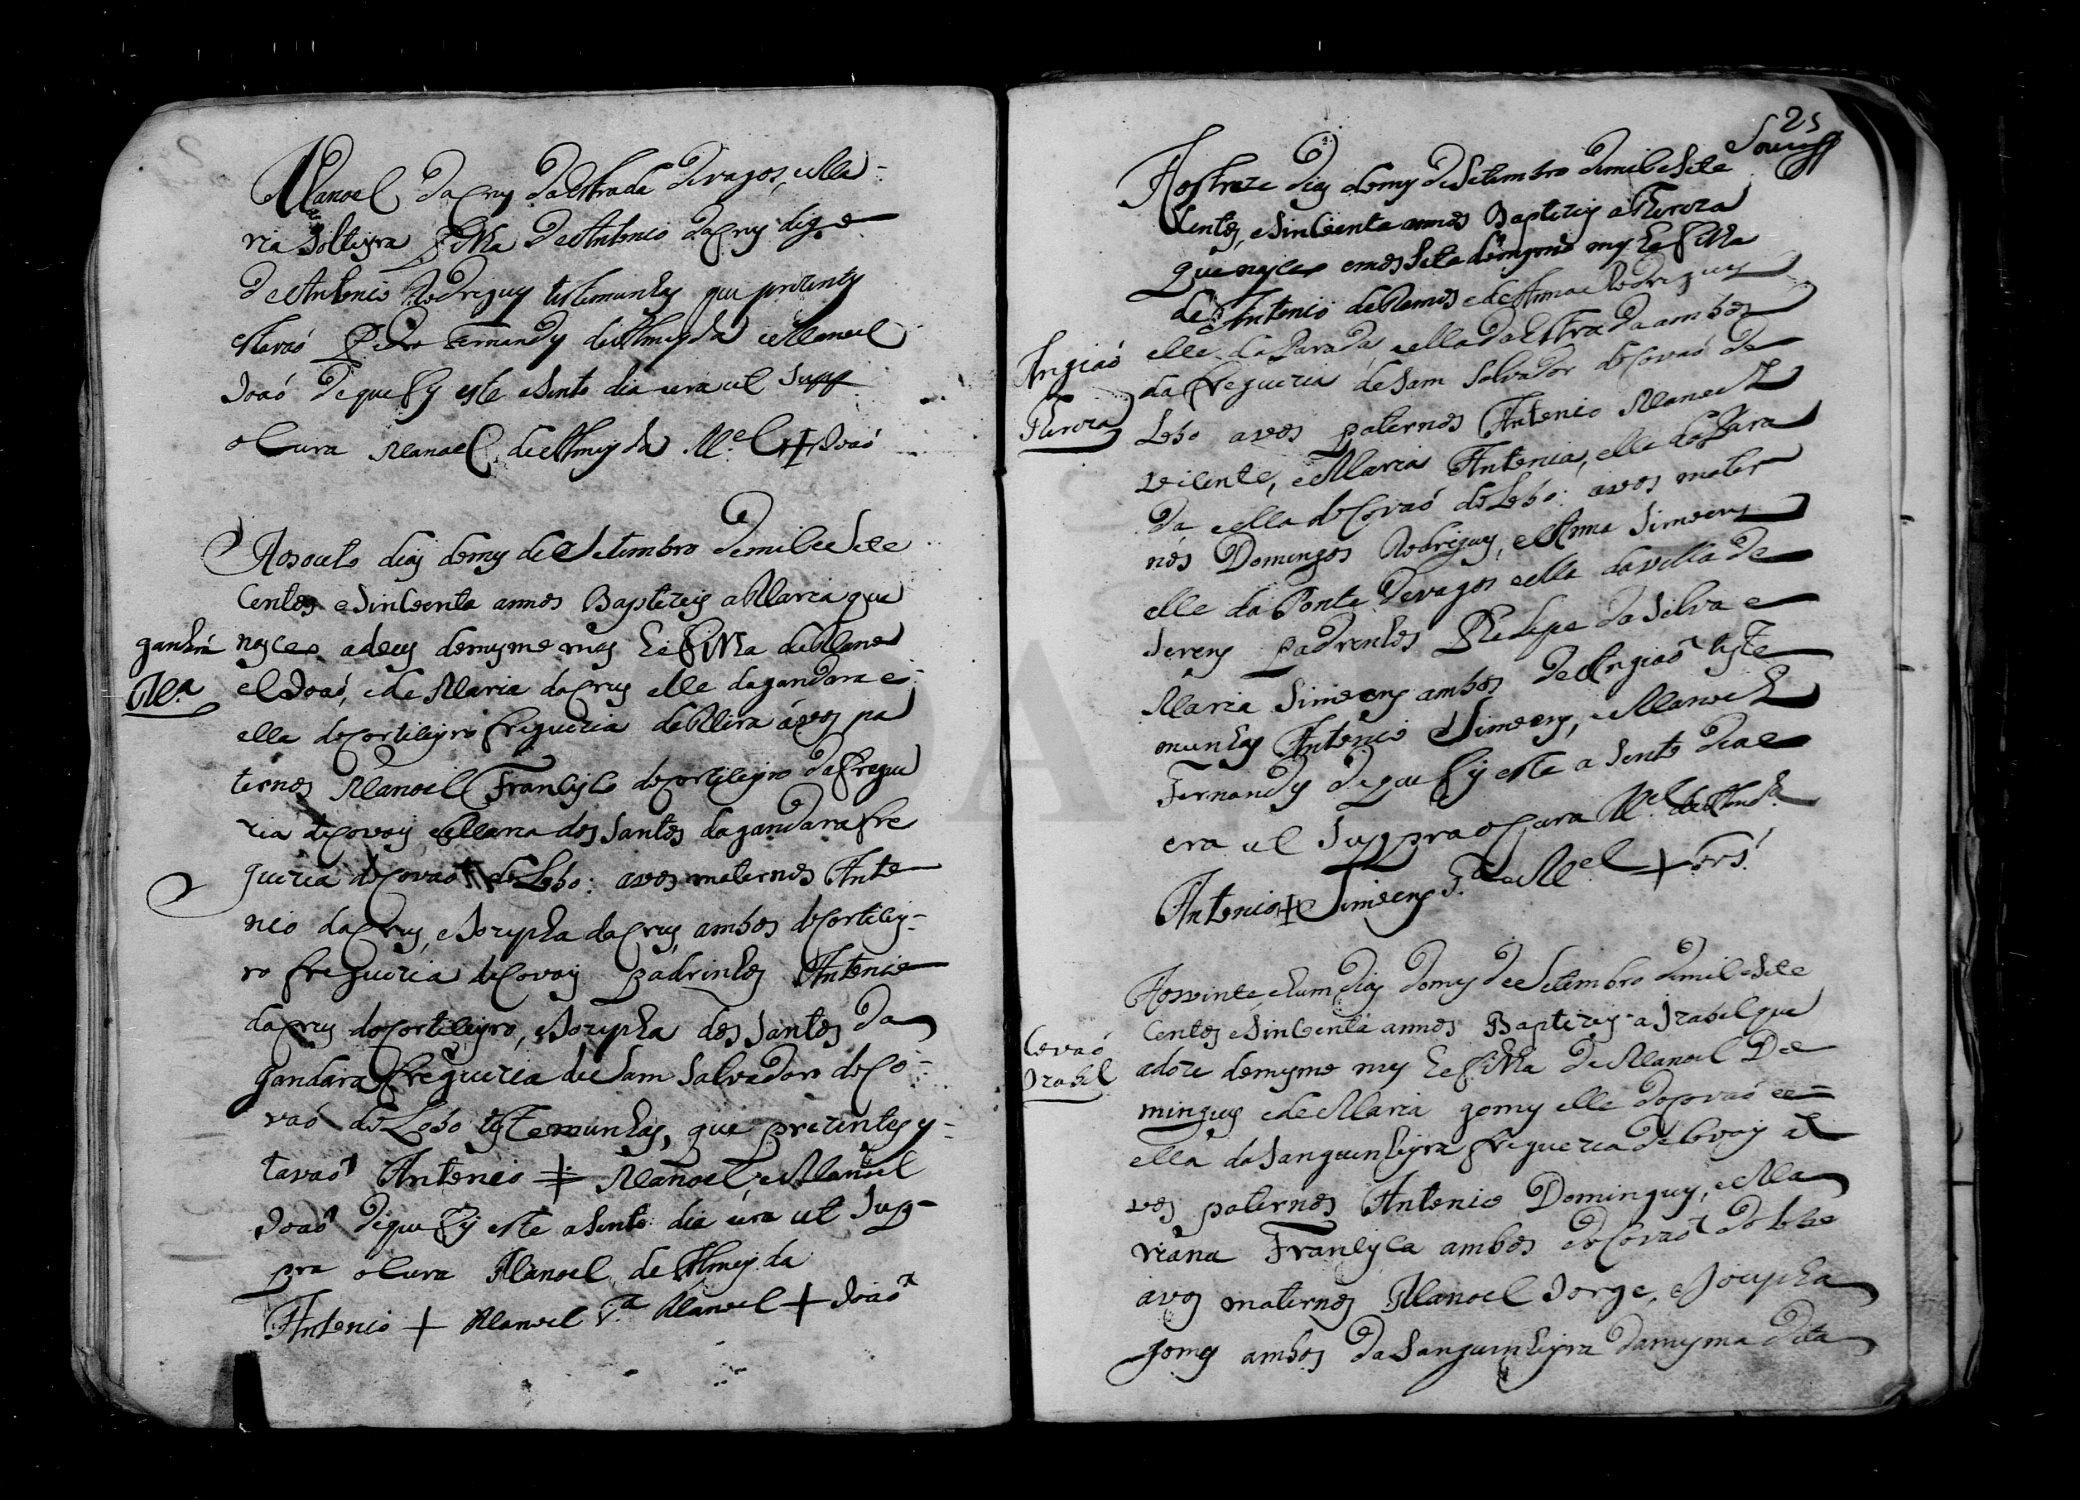 Manoel da Crus da Estrada de vagos, e Ma-
ria Solteyra filha de Antonio da Crus digo
de Antonio Rodrigues testemunhas que prezentes
estavaõ Pedro Fernandes de Almeyda e Manoel
Joaõ de que fis este asento dia era ut supp
o Cura Manoel de Almeyda M.el + Joaõ
Aos outo dias do mes de Setembro de mil e Sete
Centos e Sincoenta annos Baptizey a Maria que
nasceo a deus do mesmo mes he filha de Mano
el Joaõ, e de Maria da Crus elle da gandara e
ella do Cortileyro freguezia de Mira ávos pa
ternos Manoel Francisco do Cortileyro da fregue
zia de Covoens e Maria dos Santos da gandara fre
guezia do Covaõ do Lobo: avos maternos Anto
nio da Crus, e Jozepha da Crus, ambos do Cortiley-
ro freguezia de Covoens padrinhos Antonio
da Crus do Cortileyro, e Jozepha dos Santos da
gandara freguezia de Sam Salvador do Co-
vaõ do Lobo testemunhas, que prezentes es-
tavaõ Antonio + Manoel, e Manoel
Joaõ de que fis este asento dia era ut Sup-
pra o Cura Manoel de Almeyda
Antonio + Manoel t.a Manoel + Joaõ
ganda
M.a
25
Aos treze dias do mes de Setembro de mil e Sete
Centos, e Sincoenta annos Baptizey a Thereza
que nasceo em os Sete do mesmo mes he filha
de Antonio de Ramos e de Anna Rodrigues
elle da Parada, e ella da Estrada ambos
da freguezia de Sam Salvador do Covaõ do
Lobo avos paternos Antonio Manoel
vicente, e Maria Antonia, elle da Para
da e ella do Covaõ do Lobo: avos mater
nos Domingos Rodrigues, e Anna Simoens
elle da Ponte de vagos e ella da villa de
Serem padrinhos Phelipe da Silva e
Maria Simoens ambos de Angiaõ teste
munhas Antonio Simoens, e Manoel
Fernandes de que fis este asento dia e
era ut Suppra o Cura M.el de Almd.a
Antonio + Simoens t.a M.el + Frs
Angiaõ
Tereza
Aos vinte e hum dias do mes de Setembro de mil e Sete
Centos e Sincoenta annos Baptizey a Izabel que
a doze do mesmo mes he filha de Manoel Do
mingues e de Maria gomes elle do Covaõ e
ella da Sanguinheyra freguezia de Covoens a
vos paternos Antonio Domingues, e Ma
riana Francisca ambos do Covaõ do Lobo
avos maternos Manoel Jorge, e Jozepha
gomes ambos da Sanguinheyra da mesma dita
Covaõ
Izabel